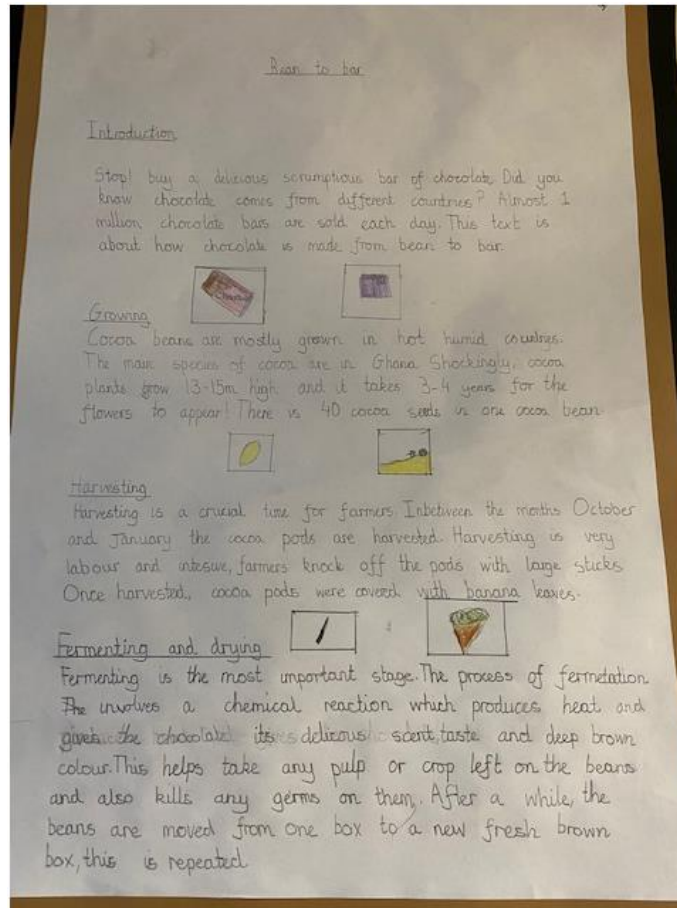 Bean to bar
Introduction
Stop! buy a delicious scrumptious bar of chocolate. Did you
know chocolate comes from different countries? Almost 1
million chocolate bars are sold each day. This text is
about how chocolate is made from bean to bar.
Growing
Cocoa beans are mostly grown in hot humid
The main species of cocoa are in Ghana Shockingly, cocoa
plants grow 13-15m high and it takes 3-4 years for the
flowers to appear! There is 40 cocoa seeds in one cocoa bean.
Harvesting
Harvesting is a crucial time for farmers. Inbetween the months October
and January the cocoa pods are harvested. Harvesting is very
labour and intesive, farmers knock off the pods with large sticks
Once harvested, cocoa pods were covered with banana leaves.
Fermenting and drying
Fermenting is the most important stage. The process of fermetation
involves a chemical reaction which produces heat and
gives the chocolate its delicous scent, taste and deep brown
colour. This helps take any pulp or crop left on the beans
and also kills any germs on them. After a while, the
beans are moved from one box to a new fresh brown
box, this is repeated